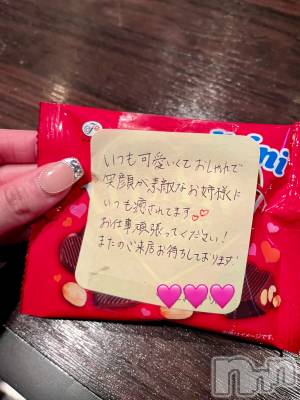 mini
いつも可愛いくておしゃれで
笑顔が素敵なお姉様に
いつも癒されてます💕
お仕事頑張ってください！
またのご来店お待ちしております！